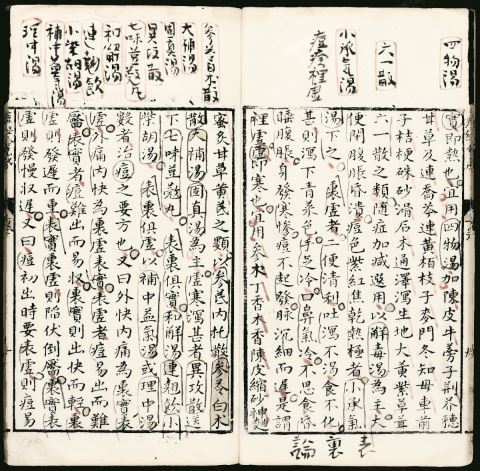 四物湯
六一散
小承氣湯
痘疹裡虛
實即熱也宜用四物湯加陳皮牛蒡子荆芥穗
甘草及連喬芩連黄栢枝子麥門冬知母車前
子桔梗硃砂滑石木通澤瀉生地大黄紫草茸
六一散之類随症加減選用以解毒湯為主大
便閉腹脹昏潰痘色紫紅焦乾熱極者小承氣
湯下之 裏虛者二便清利吐瀉不渴食不化
甚則瀉下青菜色手足冷口鼻氣冷不思食昏
睡腹脹身發寒慘痘不起發脉沉細而遲是謂
裡虛虛即寒也宜用參木丁香木香陳皮縮砂
表裏論
白朮散
大補湯
固真湯
異攻散
七味荳蔻丸
和解湯
連翹飲
小柴胡湯
補中益氣湯
理中湯
蜜炙甘草黄芪之類以參芪内托散參苓白木
散大補湯固真湯為主虛寒瀉甚者異攻散送
下七味荳蔻丸 表裏俱實和解湯連翹飲小
柴胡湯 表裏俱虛以補中益氣湯或理中湯
數者治痘之要方也又曰外快内痛為裏實表
虛外痛内快為裏虛表實表虛者痘易出而難
靥表實者痘難出而易收裏實則出快而輕裏
虛則發遲而重表實裏虛則陷伏倒靥裏實表
虛則發慢收遲又曰痘初出時要表虛則痘易